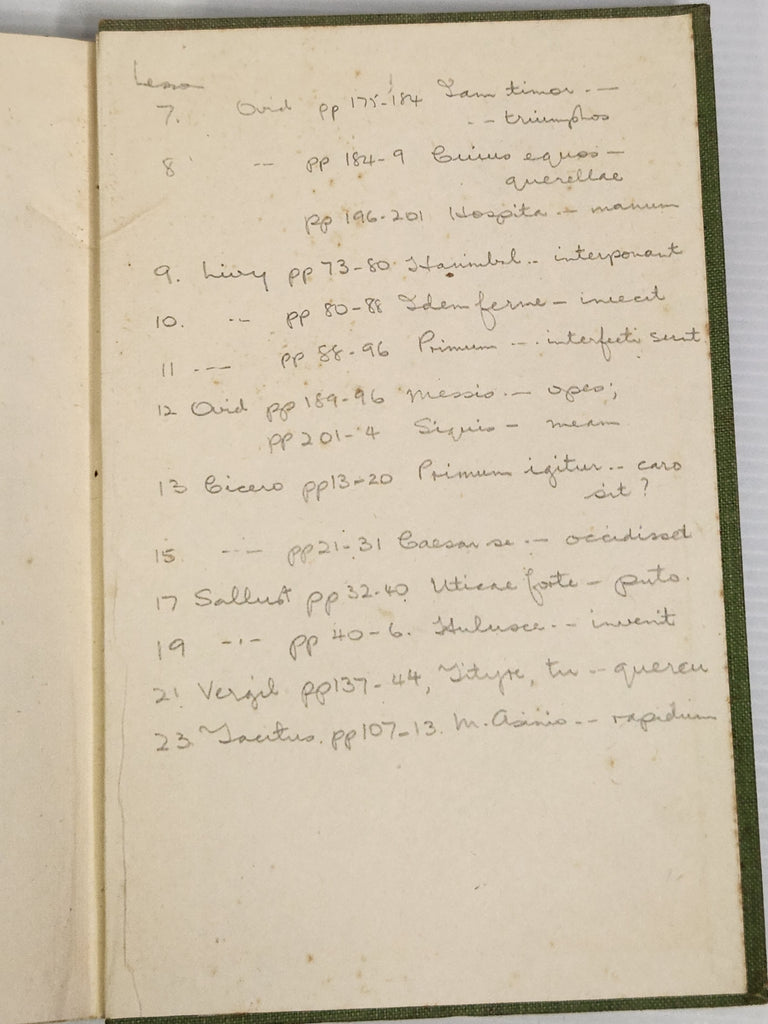 Lesson
7. Ovid pp 175-184 Iam timor . —
-- triumphos
8 -- pp 184-9 Cuius equos —
querellae
pp 196-201 Hospita .- manum
9. Livy pp 73-80 Hannibal .. interponant
10. -- pp 80-88 Idem ferme — iniecit
11 --- pp 88-96 Primum --. interfecti sunt
12 Ovid pp 189-96 Messis .— opes;
pp 201-4 Siquis — meam
13 Cicero pp 13-20 Primum igitur .. caro
sit?
15 --- pp 21-31 Caesar se .— occidisset
17 Sallust pp 32-40 Uticae forte — puto.
19 -.- pp 40-6. .- invenit
21 Vergil pp 137-44, Tityre, tu -- quercu
23 Tacitus. pp 107-13. M. Asinio -- rapidum